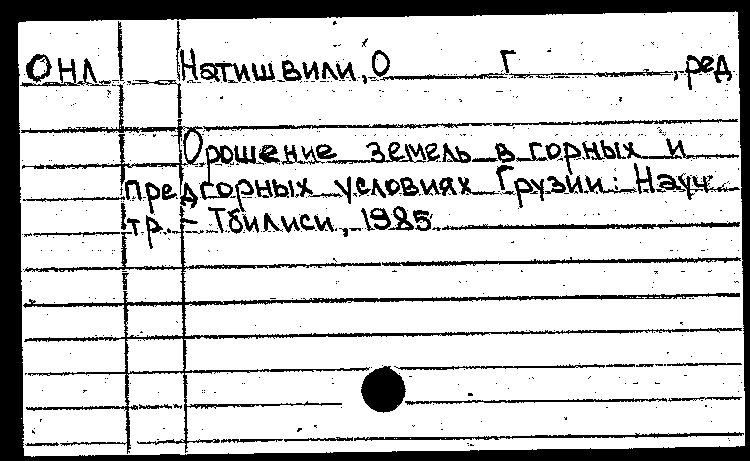 ОНЛ Натишвили, О Г , ред
Орошение земель в горных и
предгорных условиях Грузии: Науч
тр. - Тбилиси, 1985